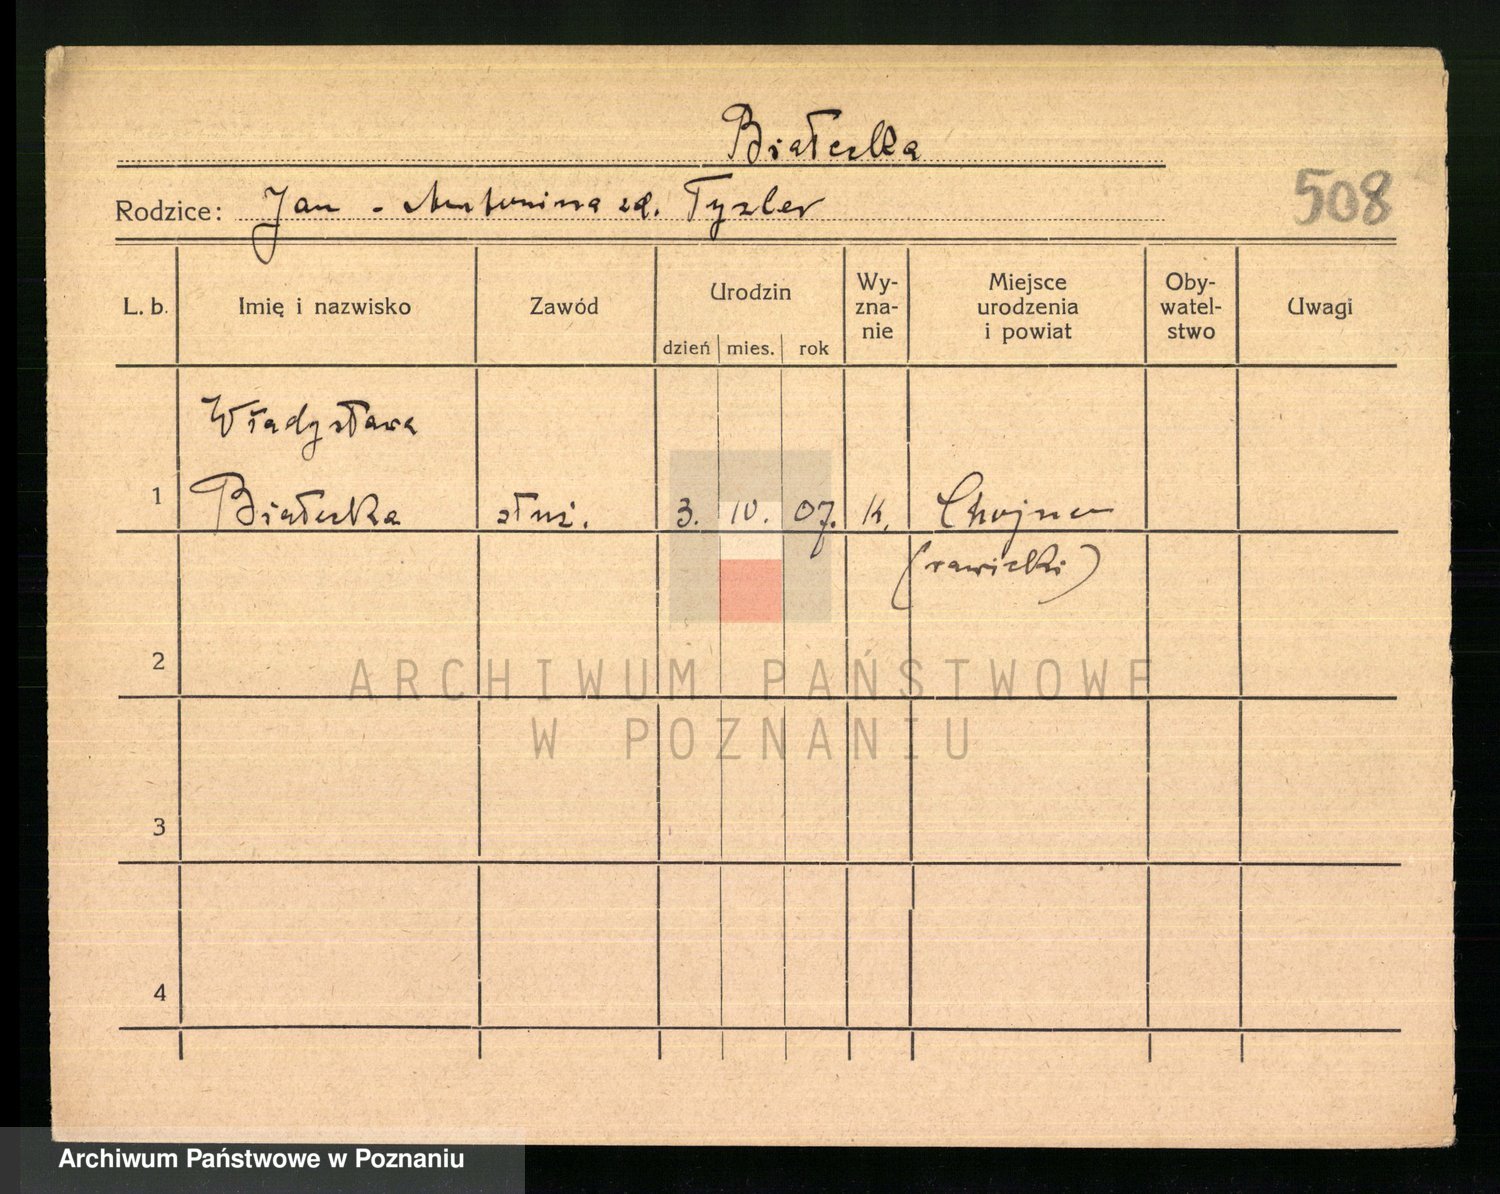 Białecka
508
Rodzice: Jan - Antonina zd. Tyzler
L. b. Imię i nazwisko Zawód Urodzin dzień mies. rok Wy-zna-nie Miejsce urodzenia i powiat Oby-watel-stwo Uwagi
Władysława
1 Białecka służ. 3. IV. 07. K. Chojno
(rawicki)
2
ARCHIWUM PAŃSTWOWE
W POZNANIU
3
4
Archiwum Państwowe w Poznaniu